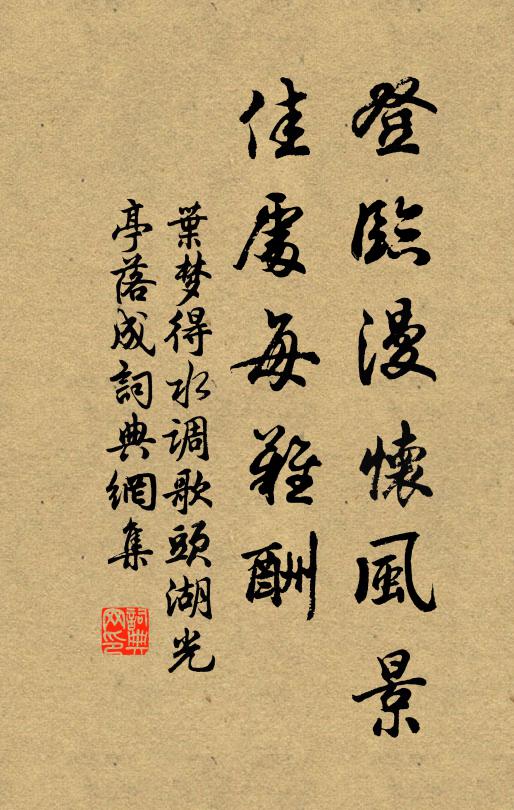 登臨漫懷風景
佳處每難酬
葉梦得水调歌頭湖光
亭落成詞典網集
詞典网印